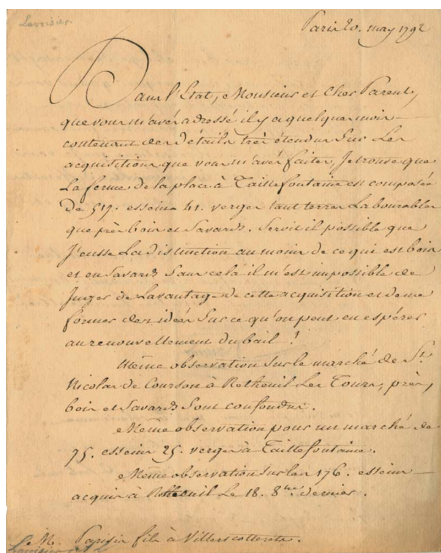 Lavoisier
Paris 20. may 1792
Dans l'Etat, Monsieur et Cher Parent,
que vous m'avés adressé il y a quelques mois
contenant des détails très étendus sur les
acquisitions que vous m'avés faites, Je trouve que
La ferme de la place à Taillefontaine est composée
de 517. esseins 41. verges tant terres Labourables
que près bois et Savards. Seroit il possible que
J'eusse La distinction au moins de ce qui est bois
et en Savards Sans celà il m'est impossible de
Juger de Lavantage de cette acquisition et de me
former des idées Sur ce qu'on peut en espérer
au renouvellement du bail !
Même observation sur le marché de St.
Nicolas de Courson à Retheuil Les Terres, près,
bois et Savards Sont confondus.
Même observation pour un marché de
75. esseins 25. verges à Taillefontaine.
Même observation sur les 176. esseins
acquis à Retheuil Le 18. 8bre dernier.
M. Parisis fils à Villers cotterets.